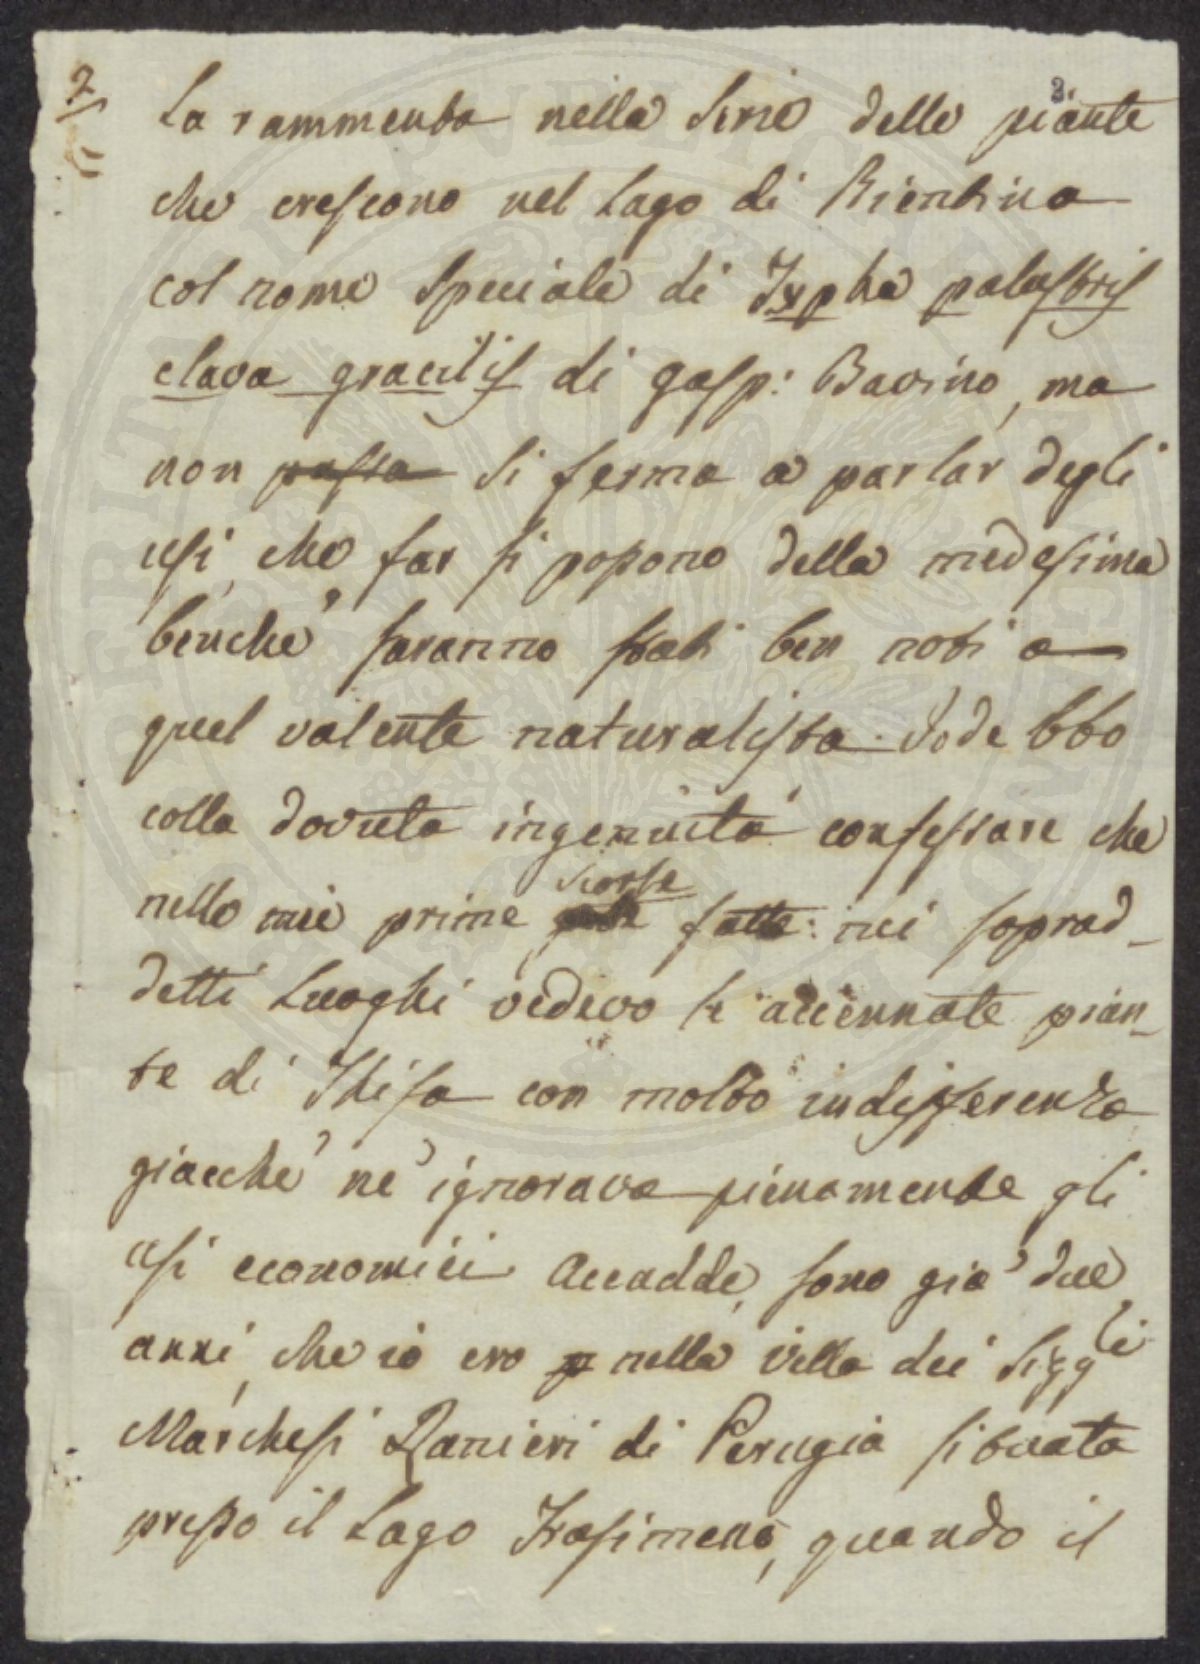 7
2.
La rammenta nella Serie delle piante
che crescono nel Lago di Bientina
col nome Speciale di Typha palustris
clava gracilis di Gasp: Bavino, ma
non passa si ferma a parlar degli
usi, che far si possono della medesima
benche' saranno stati ben noti a
quel valente naturalista. Io debbo
colla dovuta ingenuità confessare che
nelle mie prime scorse fatte nei soprad-
detti Luoghi vedevo le accennate pian-
te di Thifa con molta indifferenza
giacche' ne' ignorava pienamente gli
usi economici. Accadde, sono gia' due
anni, che io ero nella villa dei Sigg.ri
Marchesi Ranieri di Perugia situata
presso il Lago Trasimeno, quando il